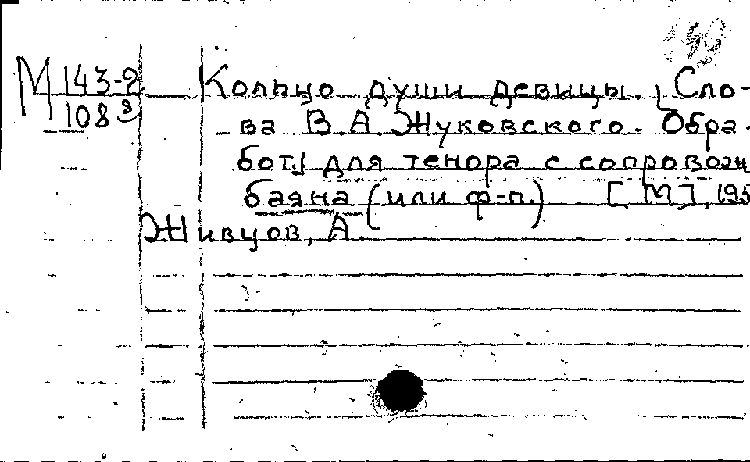 М 143-2 Кольцо души девицы. Сло-
108 ва В.А. Жуковского. Обра.
бот. для тенора с сопровож
баяна (или ф-п.) [М], 195
Живцов, А